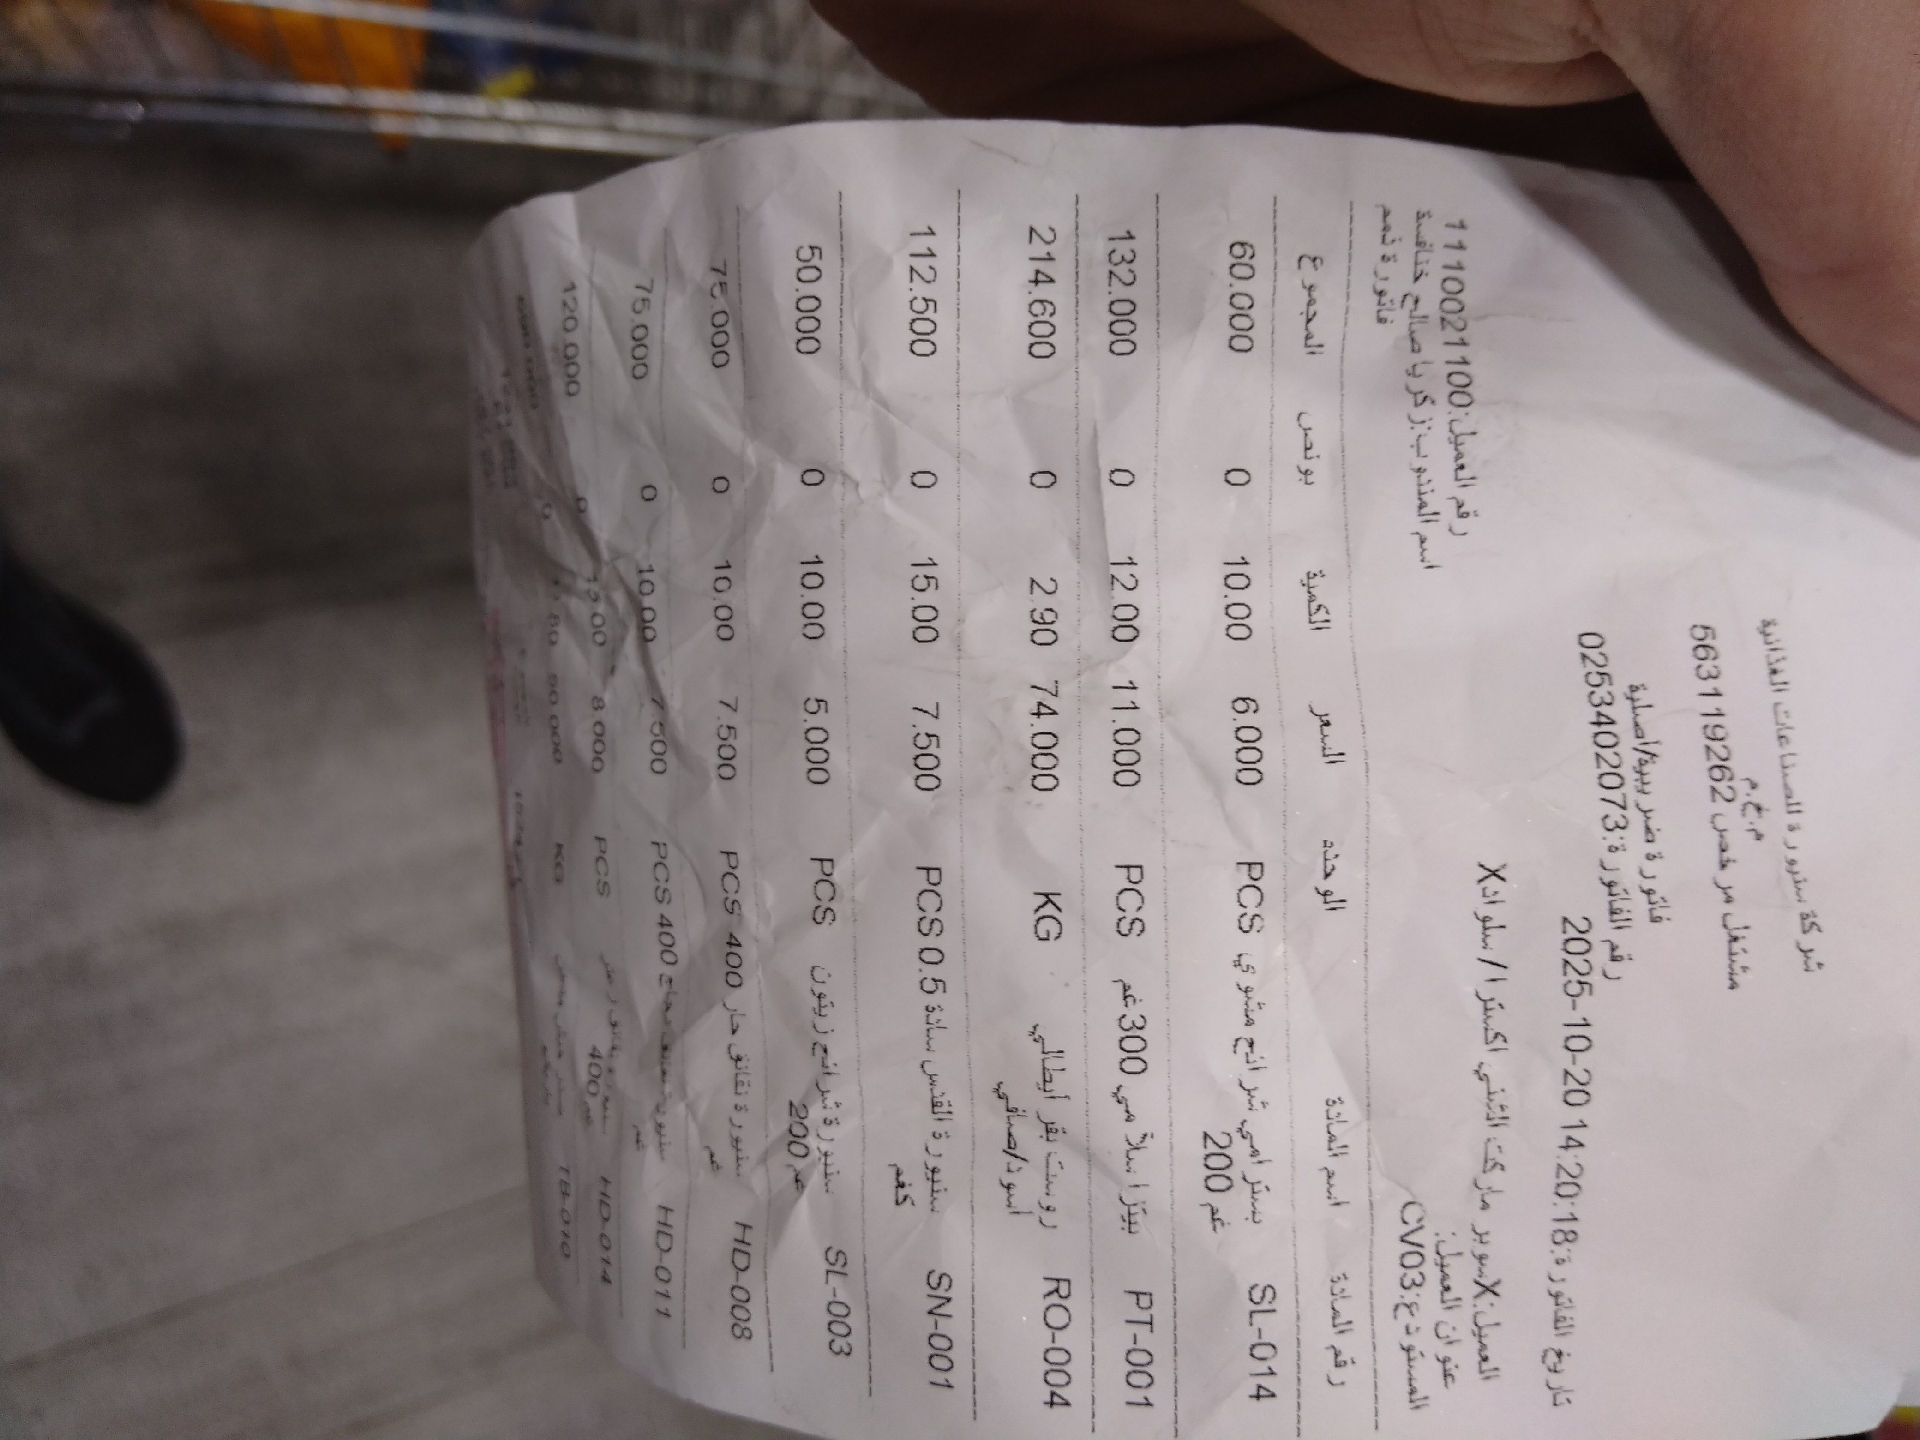 شركة سنيورة للصناعات الغذائية
م.خ.م
مشتغل مرخص 563119262
فاتورة ضريبية/أصلية
رقم الفاتورة:0253402073
تاريخ الفاتورة:2025-10-20 14:20:18
العميل:Xسوبر ماركت الثني اكسترا/سلوادX
عنوان العميل:
رقم العميل:1110021100
المستودع:CV03
اسم المندوب:زكريا صالح خنافسة
فاتورة ذمم
رقم المادة اسم المادة الوحده السعر الكمية بونص المجموع
SL-014 بسترامي شرائح مشوي PCS 6.000 10.00 0 60.000
200 غم
PT-001 بيتزا سلامي 300غم PCS 11.000 12.00 0 132.000
RO-004 روست بقر أيطالي KG 74.000 2.90 0 214.600
أسود/صافي
SN-001 سنيورة القدس سادة 0.5 PCS 7.500 15.00 0 112.500
كغم
SL-003 سنيورة شرائح زيتون PCS 5.000 10.00 0 50.000
200 غم
HD-008 سنيورة نقانق حار 400 PCS 7.500 10.00 0 75.000
غم
HD-011 400 PCS 7.500 10.00 0 75.000
غم
HD-014 PCS 8.000 0 120.000
400 غم
TB-010 KG 0